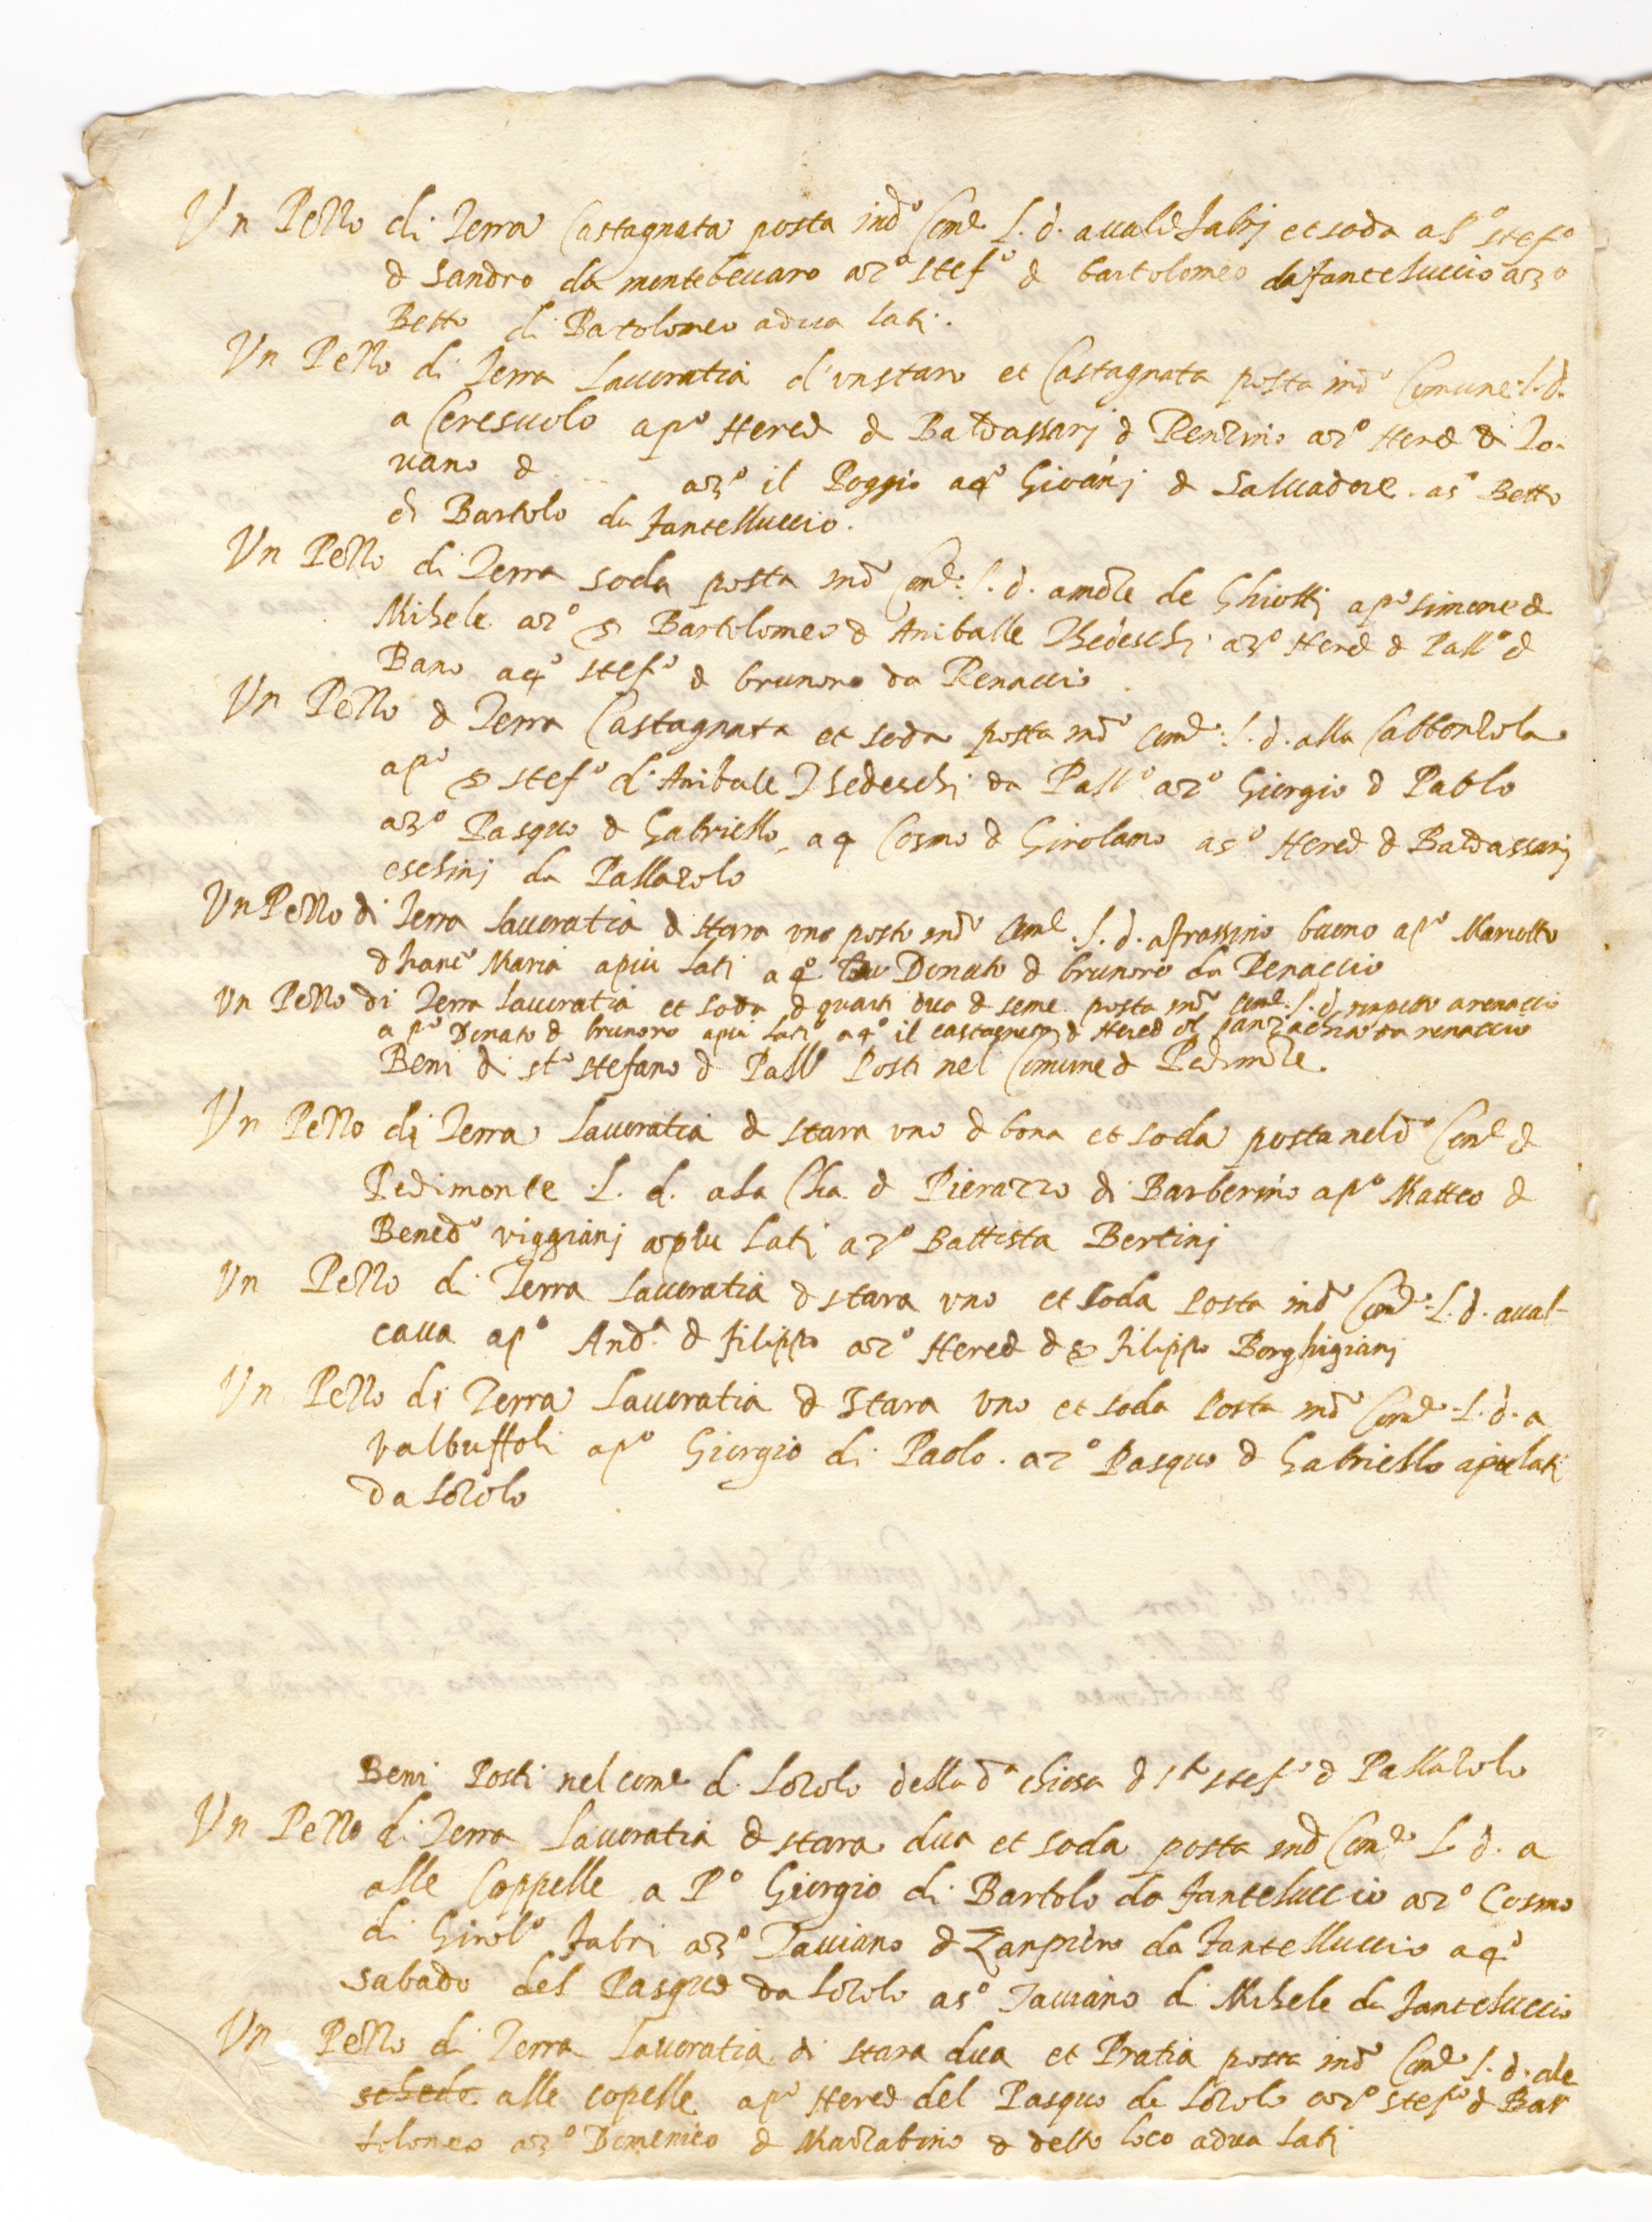 Vn Pezzo di Terra Castagnata posta ind.º Com.e l. d. a ualdi fabrj et soda a p.º stef.º
d Sandro da montebeuaro a 2º stef.º d bartolomeo da fanteluccio a 3º
Betto di Batolomeo adua lati.
Vn Pezzo di Terra lauoratia d'vnstaro et Castagnata posta ind.º Comune l. d.
a Ceresuolo a pº Hered d Baldassarj d Renzino a 2º Hered di To-
uano d a 3º il Poggio a 4º Giouánj d Saluadore. a 5º Betto
di Bartolo da fantelluccio.
Vn Pezzo di Terra soda posta ind.º Com.e l. d. a mõte de Ghiottj a pº simone d
Mihele a 2º s Bartolomeo d Aniballe Thedeschi a 3º Hered d Pall.º d
Bano a 4º stef.º d brunoro da Renaccio
Vn Pezzo d Terra Castagnata et soda posta ind.º Com.e l. d. alla Cabbonzola
a pº s stef.º d'Anibale Thedeschi da Pall.º a 2º Giorgio d Pablo
a 3º Pasquo d Gabriello, a 4 Cosmo d Girolamo a 5º Hered d Baldassarj
eschinj da Pallazolo
Vn Pezzo di Terra lauoratia d stara uno posto ind.º Com.e l. d. afrassino buono a pº Mariotto
d Maria apiu lati a 4º Donato d brunoro da Renaccio
Vn Pezzo di Terra lauoratia et soda d quarti dua d seme posta ind.º Com.e l. d. rinpetto a renaccio
a pº Donato d brunoro apiu lati a 4º il castagneto d Hered d panzachia da renaccio
Beni di s.to stefano d Pall.º Posti nel Comune d Pedimõte.
Vn Pezzo di Terra lauoratia d stara uno d bona et soda posta neld.º Com.e d
Pedimonte l. d. ala Cha d Pierazzo di Barberino a pº Matteo d
Bened.º viggianj a piu latj a 3º Battista Bertinj
Vn Pezzo di Terra lauoratia d stara uno et soda Posta ind.º Com.e l. d. a ual-
caua a pº And.ª d filippo a 2º Hered d s filippo Borghigianj
Vn Pezzo di Terra lauoratia d Stara vno et soda Posta ind.º Com.e l. d. a
valbuffoli a pº Giorgio di Paolo. a 2º Pasquo d Gabriello apiulati
da lozolo
Beni Posti nel com.e d. lozolo della d.ª chiesa d s.to stef.º d Pallazolo
Vn Pezzo di Terra lauoratia d stara dua et soda posta ind Com.e l. d. a
alle Coppelle a Pº Giorgio di Bartolo da fanteluccio a 2º Cosmo
di Girol.º fabri a 3º Tauiano d Zanpiero da fantelluccio a 4º
Sabado del Pasquo da lozolo a 5º Tauiano di Mihele da fanteluccio
Vn Pezzo di Terra lauoratia di stara dua et Pratia posta ind.º Com.e l. d. ale
schede alle copelle a pº Hered del Pasquo da lozolo a 2º stef.º d Bar
tolomeo a 3º Domenico d Mazzabino d detto loco adua lati